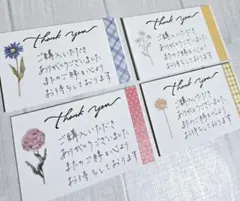 Thank you
ご購入いただき
ありがとうございました
またのご縁を心より
お待ちしております
Thank you
ご購入いただき
ありがとうございました
またのご縁を心より
お待ちしております
Thank you
ご購入いただき
ありがとうございました
またのご縁を心より
お待ちしております
Thank you
ご購入いただき
ありがとうございました
またのご縁を心より
お待ちしております